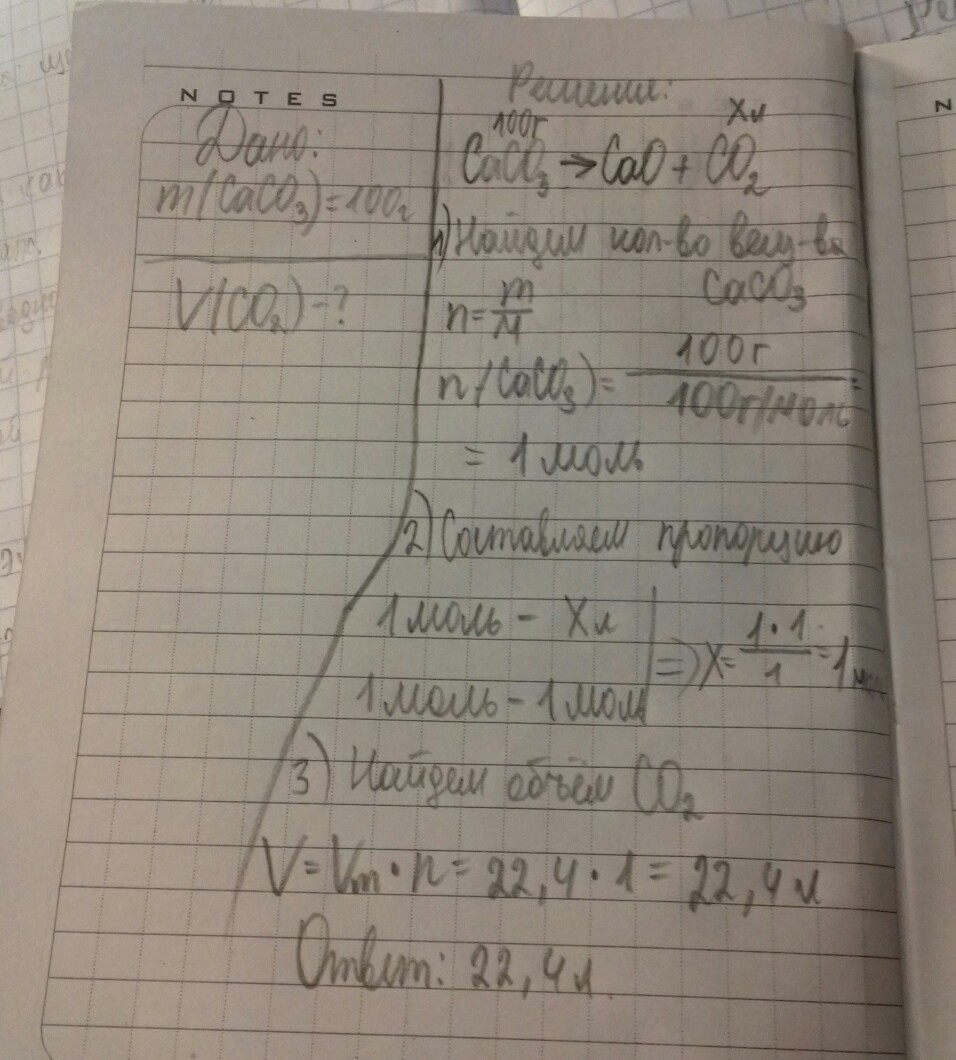 NOTES
Дано:
m(CaCO₃)=100г
V(CO₂)-?
Решение:
100г Xл
CaCO₃ → CaO + CO₂
1) Найдем кол-во вещ-ва
CaCO₃
n = m/M
n(CaCO₃) = 100г / 100г/моль =
= 1 моль
2) Составляем пропорцию
1 моль - Xл
1 моль - 1 моль
=> X = 1·1 / 1 = 1
3) Найдем объём CO₂
V = Vm · n = 22,4 · 1 = 22,4 л
Ответ: 22,4 л.
N